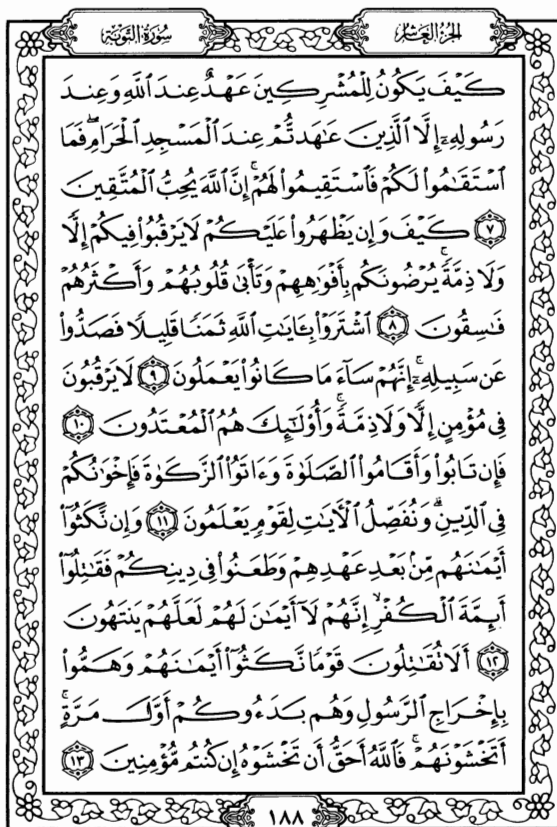 سُورَةُ التَّوْبَةِ
الجُزْءُ العَاشِرُ
كَيْفَ يَكُونُ لِلْمُشْرِكِينَ عَهْدٌ عِندَ ٱللَّهِ وَعِندَ
رَسُولِهِۦٓ إِلَّا ٱلَّذِينَ عَٰهَدتُّمْ عِندَ ٱلْمَسْجِدِ ٱلْحَرَامِۖ فَمَا
ٱسْتَقَٰمُوا۟ لَكُمْ فَٱسْتَقِيمُوا۟ لَهُمْۚ إِنَّ ٱللَّهَ يُحِبُّ ٱلْمُتَّقِينَ
٧ كَيْفَ وَإِن يَظْهَرُوا۟ عَلَيْكُمْ لَا يَرْقُبُوا۟ فِيكُمْ إِلًّا
وَلَا ذِمَّةًۚ يُرْضُونَكُم بِأَفْوَٰهِهِمْ وَتَأْبَىٰ قُلُوبُهُمْ وَأَكْثَرُهُمْ
فَٰسِقُونَ ٨ ٱشْتَرَوْا۟ بِـَٔايَٰتِ ٱللَّهِ ثَمَنًا قَلِيلًا فَصَدُّوا۟
عَن سَبِيلِهِۦٓۚ إِنَّهُمْ سَآءَ مَا كَانُوا۟ يَعْمَلُونَ ٩ لَا يَرْقُبُونَ
فِى مُؤْمِنٍ إِلًّا وَلَا ذِمَّةًۚ وَأُو۟لَٰٓئِكَ هُمُ ٱلْمُعْتَدُونَ ١٠
فَإِن تَابُوا۟ وَأَقَامُوا۟ ٱلصَّلَوٰةَ وَءَاتَوُا۟ ٱلزَّكَوٰةَ فَإِخْوَٰنُكُمْ
فِى ٱلدِّينِۗ وَنُفَصِّلُ ٱلْـَٔايَٰتِ لِقَوْمٍ يَعْلَمُونَ ١١ وَإِن نَّكَثُوٓا۟
أَيْمَٰنَهُم مِّنۢ بَعْدِ عَهْدِهِمْ وَطَعَنُوا۟ فِى دِينِكُمْ فَقَٰتِلُوٓا۟
أَئِمَّةَ ٱلْكُفْرِۙ إِنَّهُمْ لَآ أَيْمَٰنَ لَهُمْ لَعَلَّهُمْ يَنتَهُونَ
١٢ أَلَا تُقَٰتِلُونَ قَوْمًا نَّكَثُوٓا۟ أَيْمَٰنَهُمْ وَهَمُّوا۟
بِإِخْرَاجِ ٱلرَّسُولِ وَهُم بَدَءُوكُمْ أَوَّلَ مَرَّةٍۚ
أَتَخْشَوْنَهُمْۚ فَٱللَّهُ أَحَقُّ أَن تَخْشَوْهُ إِن كُنتُم مُّؤْمِنِينَ ١٣
١٨٨